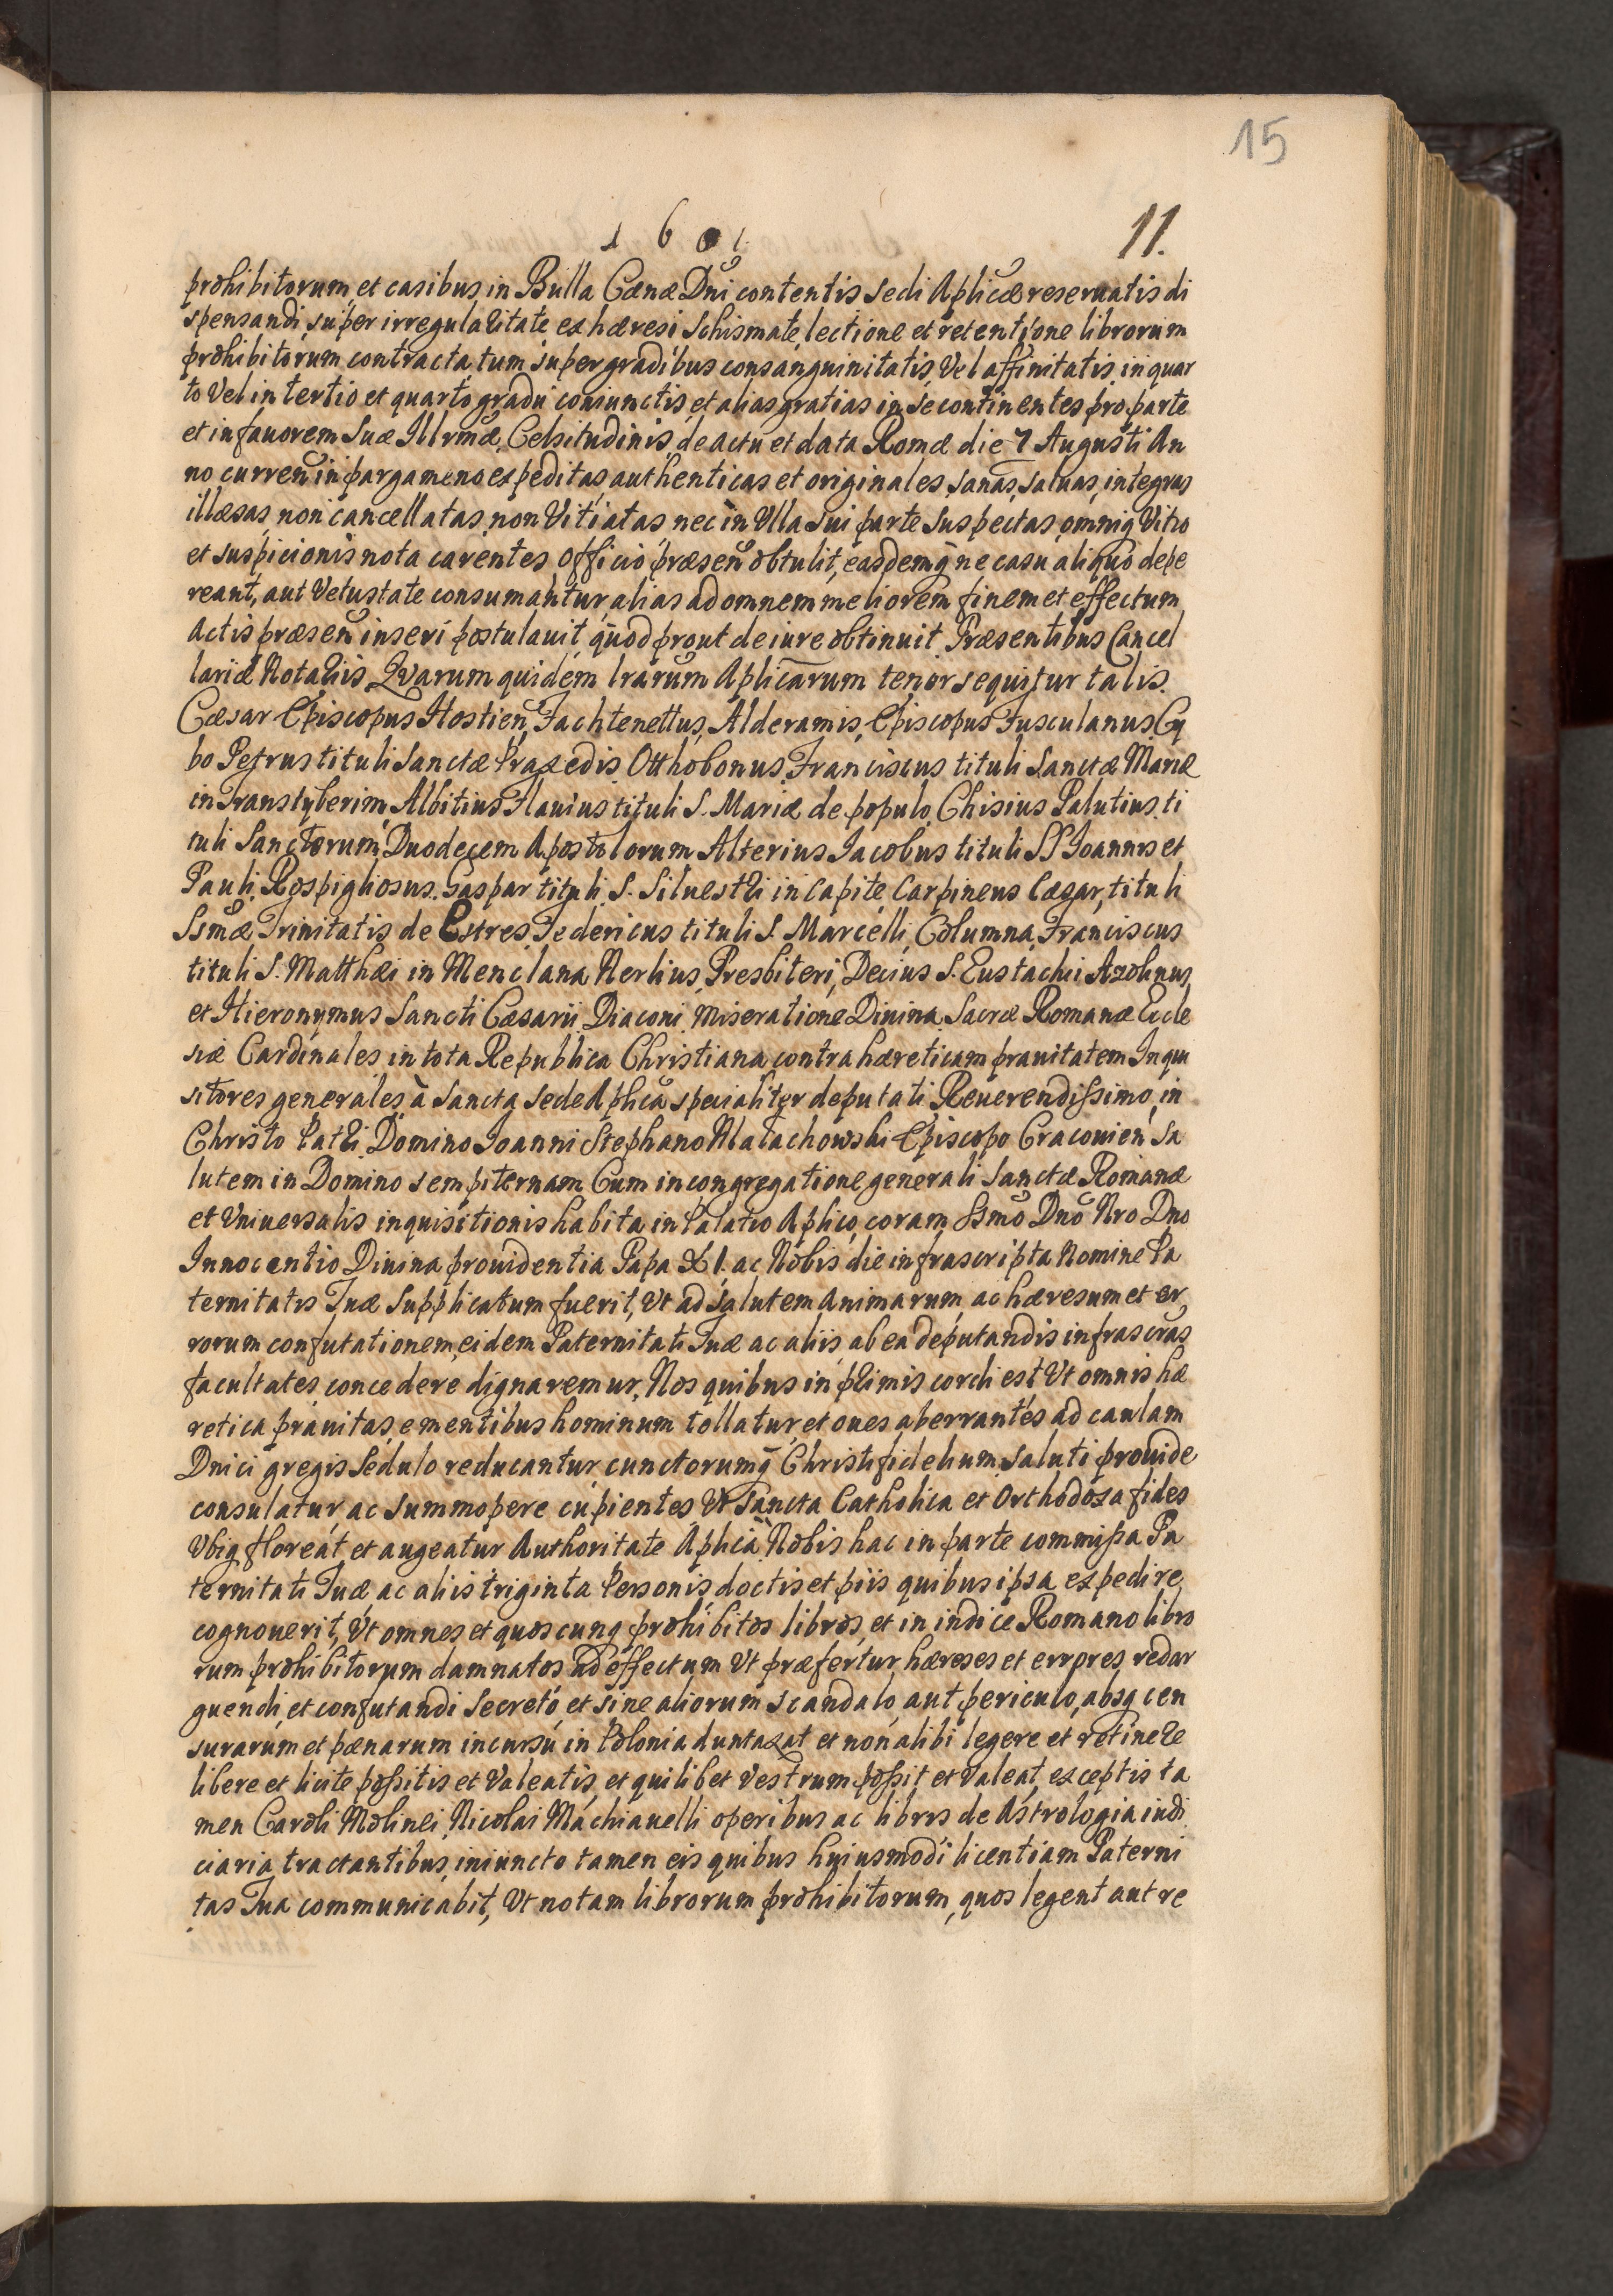 15
1681
11.
prohibitorum, et casibus in Bulla Cænæ Dni contentis sedi Aplicæ reseruatis di
spensandi super irregularitate ex hæresi schismate, lectione et retentione librorum
prohibitorum contracta tum super gradibus consanguinitatis, Vel affinitatis, in quar
to Vel in tertio et quarto gradu coniunctis, et alias gratias in se continentes, pro parte
et in fauorem Suæ Illrmæ Celsitudinis, de actu et data Romæ die 7 Augusti An
no curren in pargameno expeditas, authenticas et originales, sanas, saluas, integras
illæsas, non cancellatas, non Vitiatas nec in Vlla sui parte suspectas, omniq Vitio
et suspicionis nota carentes Officio præsen obtulit, easdemq ne casu aliquo depe
reant, aut Vetustate consumantur alias ad omnem meliorem finem et effectum
Actis præsen inseri postulauit, quod prout de iure obtinuit. Præsentibus Cancel
lariæ Notariis. Qvarum quidem lrarum Aplicarum tenor sequitur talis.
Cæsar Episcopus Hostien, Fachtenettus, Alderamis, Episcopus Tusculanus Cy
bo Petrus tituli Sanctæ Praxedis Otthobonus, Franciscus tituli Sanctæ Mariæ
in Transtyberim, Albitius Flauius tituli S. Mariæ de populo, Chisius Palutius ti
tuli Sanctorum Duodecem Apostolorum Alterius Iacobus tituli SS Ioannis et
Pauli, Rospigliosus. Gaspar tituli S. Siluestri in Capite, Carpineus Cæsar, tituli
Ssmæ Trinitatis de Estres, Federicus tituli S. Marcelli, Columna, Franciscus
tituli S. Matthæi in Menclana Nerlius, Presbiteri, Decius S. Eustachii Azolinus
et Hieronymus Sancti Cæsarii Diaconi, Miseratione Diuina Sacræ Romanæ Eccle
siæ Cardinales, in tota Republica Christiana, contra hæreticam prauitatem Inqui
sitores generales, à Sancta sede Aplica specialiter deputati Reuerendissimo, in
Christo Patri Domino Ioanni Stephano Malachowski Episcopo Cracouien Sa
lutem in Domino sempiternam Cum in congregatione generali Sanctæ Romanæ
et Vniuersalis inquisitionis habita in Palatio Aplico, coram Ssmo Dno Nro Dno
Innocentio Diuina prouidentia Papa XI. ac Nobis die infrascripta Nomine Pa
ternitatis Tuæ Supplicatum fuerit, Vt ad salutem Animarum ac hæresum et er
rorum confutationem, eidem Paternitati Tuæ ac aliis, ab ea deputandis infrascras
facultates concedere dignaremur. Nos quibus in primis cordi est Vt omnis hæ
retica prauitas, e mentibus hominum tollatur, et oues aberrantes ad caulam
Dnici gregis Sedulo reducantur, cunctorumq Christi fidelium, saluti prouide
consulatur, ac summopere cupientes, Vt Sancta Catholica et Orthodoxa fides
Vbiq floreat et augeatur Authoritate Aplica Nobis hac in parte commissa Pa
ternitati Tuæ ac aliis triginta Personis, doctis et piis quibus ipsa expedire
cognouerit, Vt omnes et quoscunq prohibitos libros, et in indice Romano libro
rum prohibitorum damnatos, ad effectum Vt præfertur hæreses et errores redar
guendi, et confutandi Secreto, et sine aliorum scandalo, aut periculo, absq cen
surarum et pænarum incursu in Polonia duntaxat et non alibi legere et retinere
libere et licite possitis et Valeatis, et quilibet Vestrum possit et Valeat, exceptis ta
men Caroli Molinei, Nicolai Machiauelli operibus ac libris de Astrologia iudi
ciaria tractantibus, iniuncto tamen eis quibus huiusmodi licentiam Paterni
tas Tua communicabit, Vt notam librorum prohibitorum, quos legent aut re